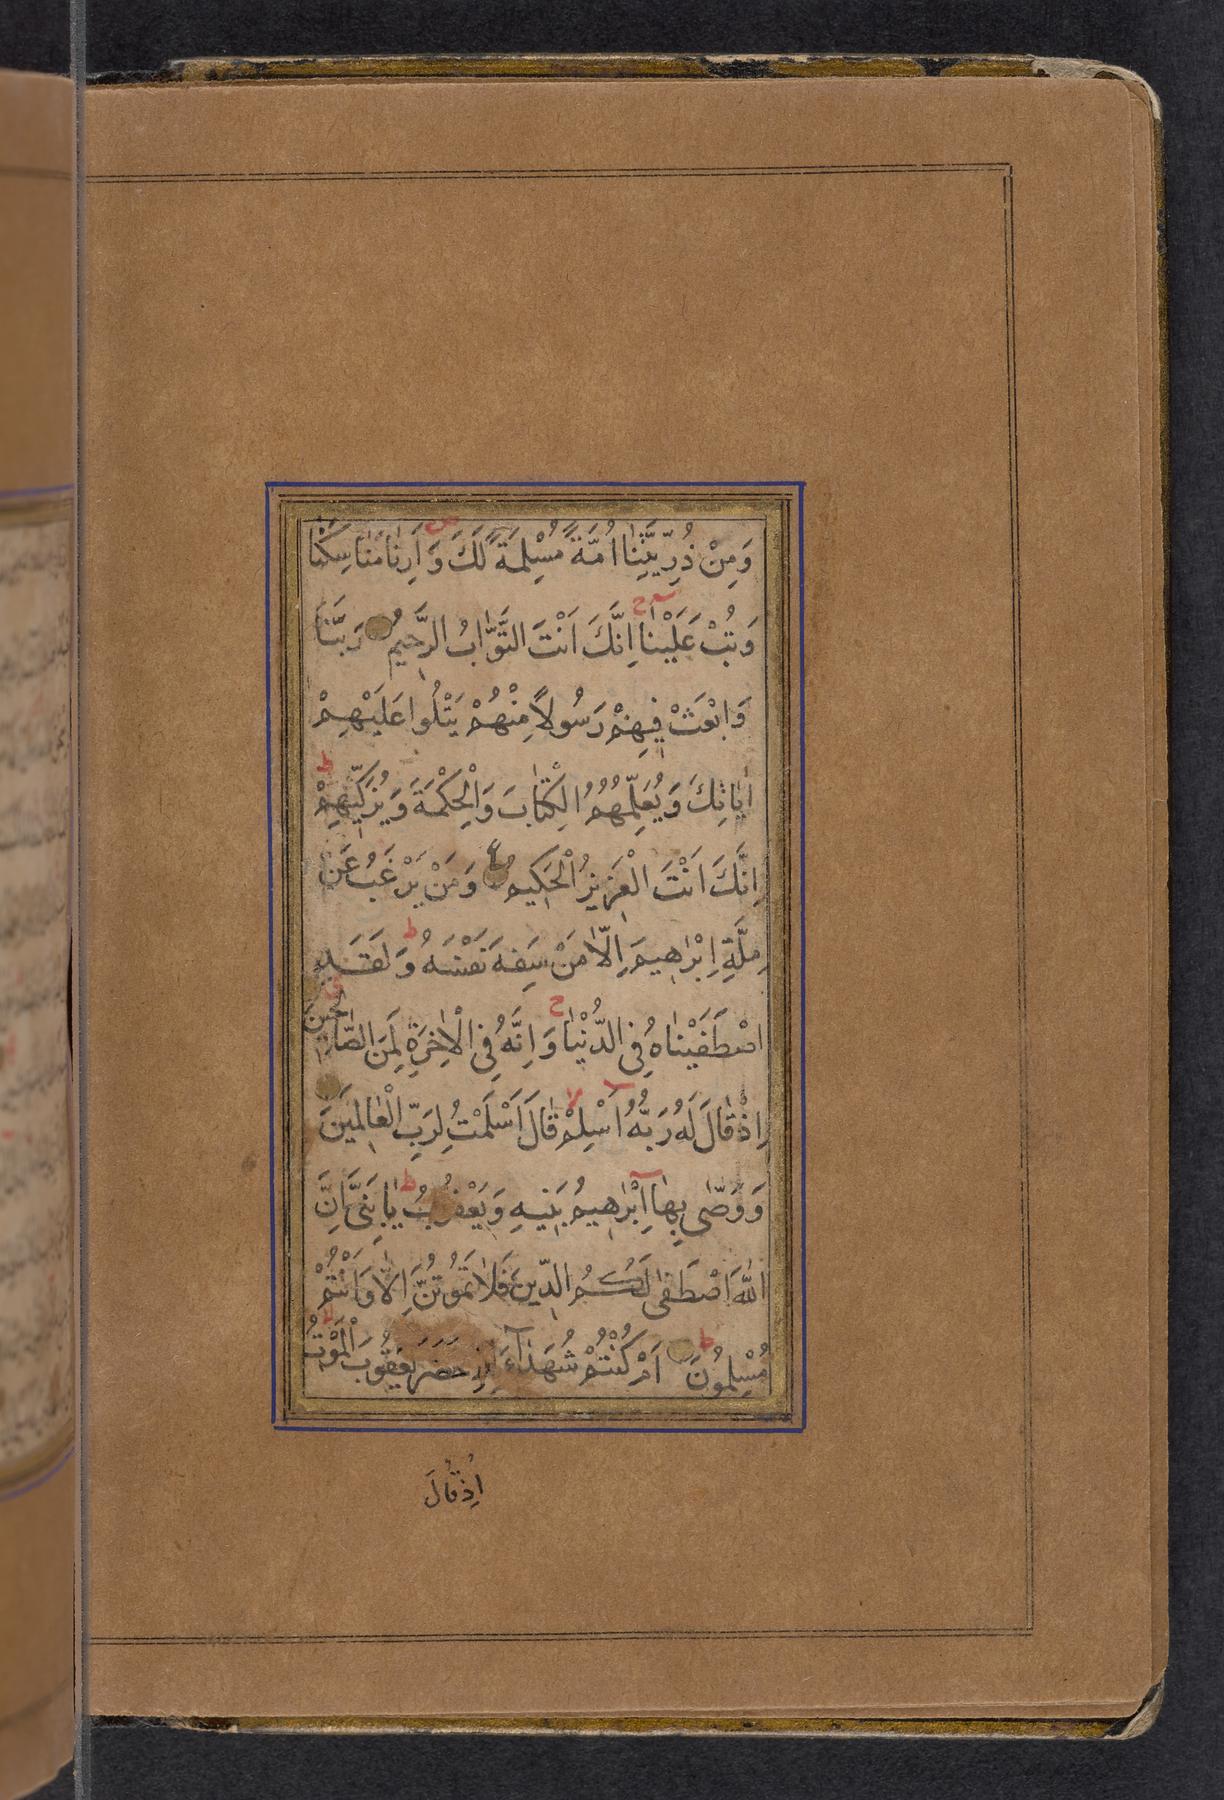 وَمِنْ ذُرِّيَّتِنَا اُمَّةً مُسْلِمَةً لَكَ وَ اَرِنَا مَنَاسِكَنَا
وَتُبْ عَلَيْنَا اِنَّكَ اَنْتَ التَّوَّابُ الرَّحِيمُ رَبَّنَا
وَابْعَثْ فِيهِمْ رَسُولاً مِنْهُمْ يَتْلُوا عَلَيْهِمْ
اٰيَاتِكَ وَيُعَلِّمُهُمُ الْكِتَابَ وَالْحِكْمَةَ وَيُزَكِّيهِمْ
اِنَّكَ اَنْتَ الْعَزِيزُ الْحَكِيمُ وَمَنْ يَرْغَبُ عَنْ
مِلَّةِ اِبْرٰهِيمَ اِلَّا مَنْ سَفِهَ نَفْسَهُ وَلَقَدِ
اصْطَفَيْنَاهُ فِي الدُّنْيَا وَاِنَّهُ فِي الْاٰخِرَةِ لَمِنَ الصَّالِحِينَ
اِذْ قَالَ لَهُ رَبُّهُ اَسْلِمْ قَالَ اَسْلَمْتُ لِرَبِّ الْعَالَمِينَ
وَ وَصّٰى بِهَا اِبْرٰهِيمُ بَنِيهِ وَيَعْقُوبُ يَا بَنِيَّ اِنَّ
اللّٰهَ اصْطَفٰى لَكُمُ الدِّينَ فَلَا تَمُوتُنَّ اِلَّا وَاَنْتُمْ
مُسْلِمُونَ اَمْ كُنْتُمْ شُهَدَآءَ اِذْ حَضَرَ يَعْقُوبَ الْمَوْتُ
اِذْ قَالَ